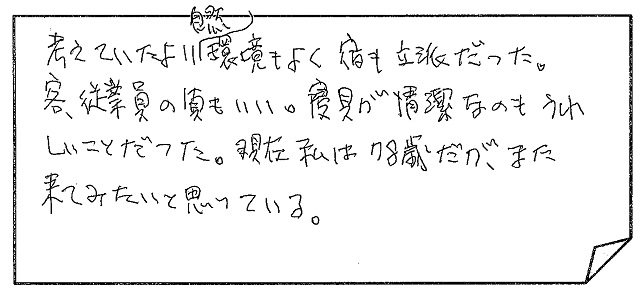 考えていたより自然環境もよく宿も立派だった。
客、従業員の質もいい。寝具が清潔なのもうれ
しいことだった。現在私は78歳だが、また
来てみたいと思っている。